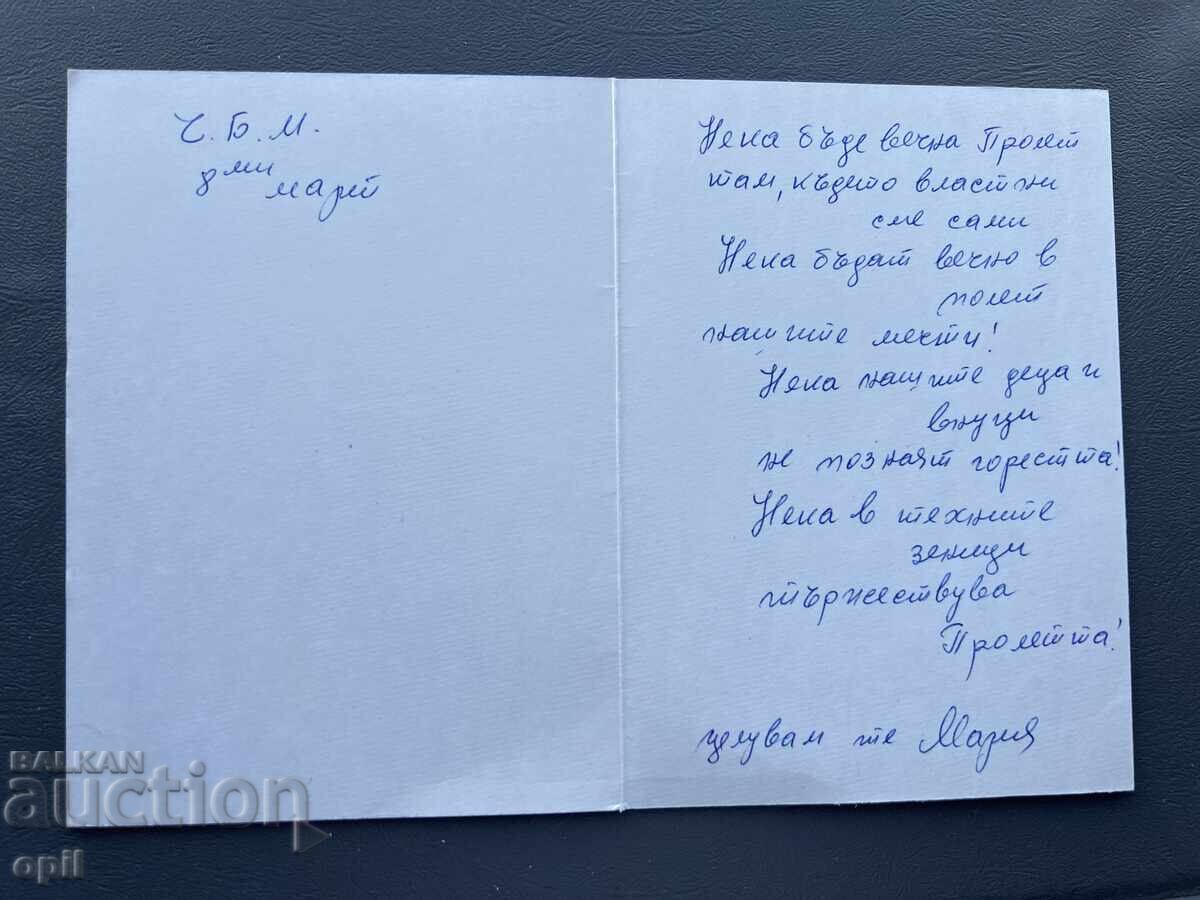 Ч. Б. М.
8ми
март
Нека бъде вечна Пролет
там, където властни
сме сами
Нека бъдат вечно в
полет
нашите мечти!
Нека нашите деца и
внуци
не познаят горестта!
Нека в техните
зеници
тържествува
Пролетта!
целувам те Мария
BALKAN
auction
opil